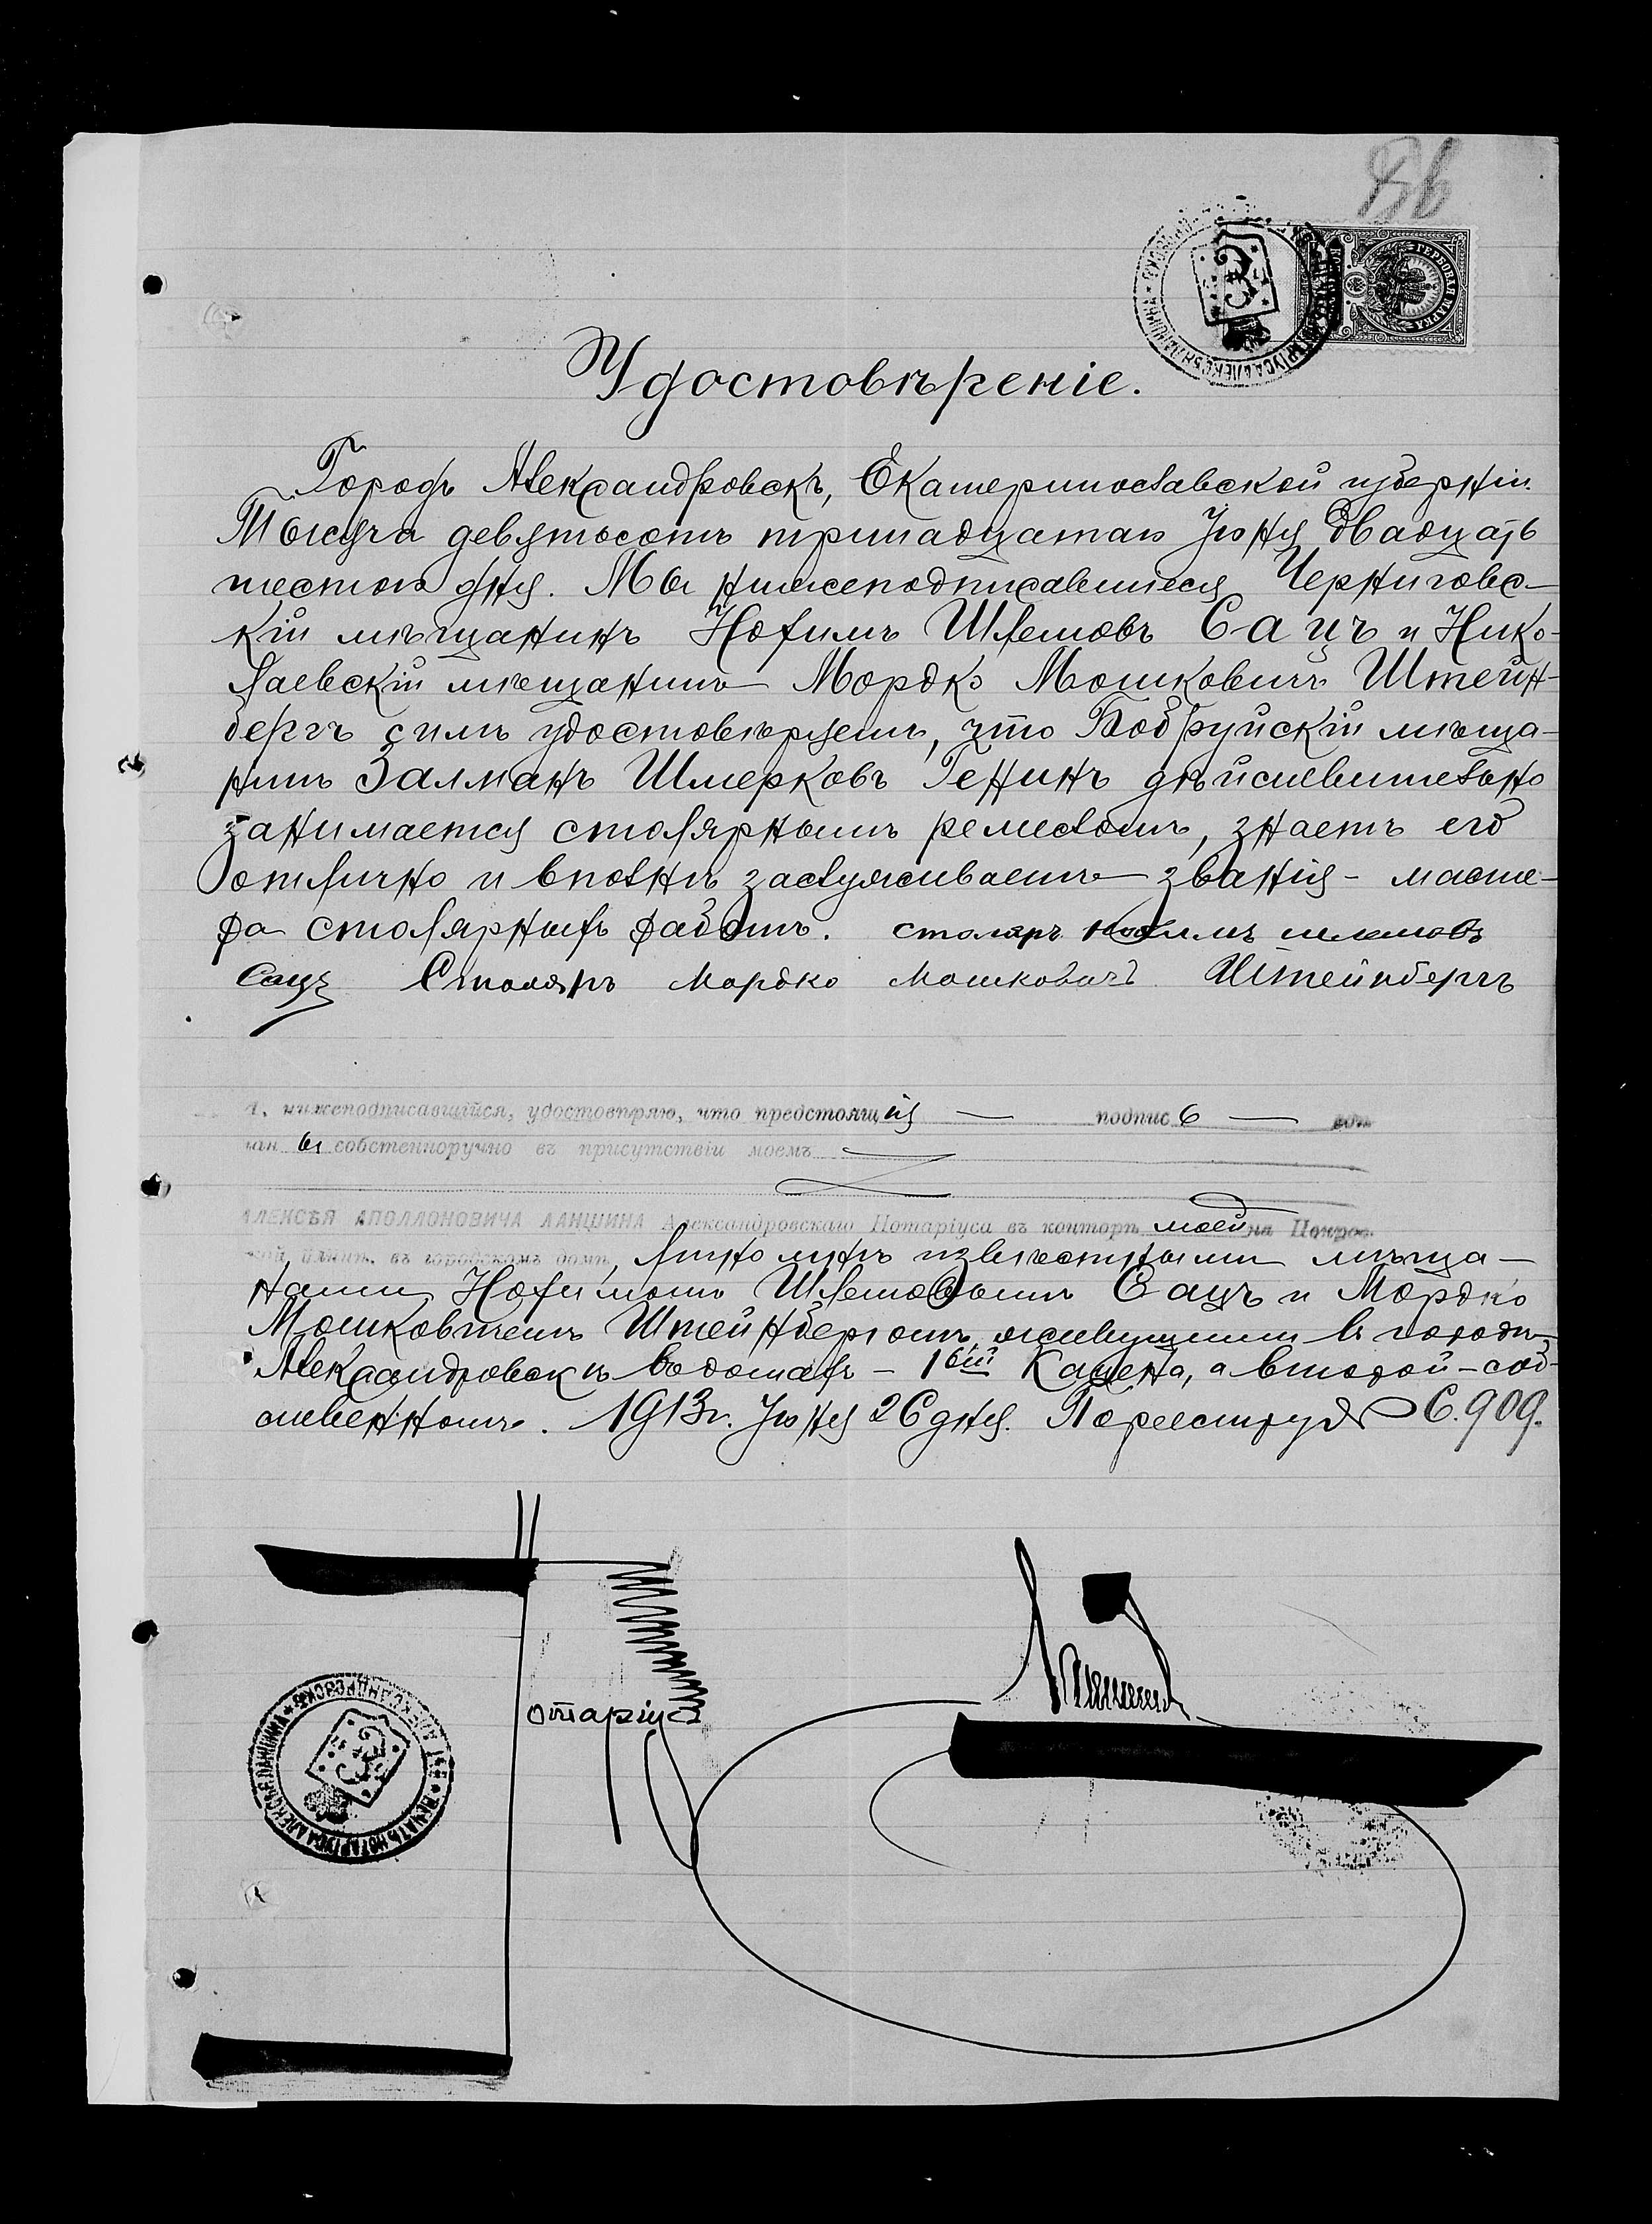 ГЕРБОВАЯ МАРКА
Удостовѣреніе.
Городъ Александровскъ, Екатеринославской губерніи.
Тысяча девятьсотъ тринадцатаго Іюня двадцать
шестого дня. Мы нижеподписавшіеся Черниговс-
кій мѣщанинъ Нохимъ Шлемовъ Сацъ и Нико-
лаевскій мѣщанинъ Мордко Мошковичъ Штейн-
бергъ симъ удостовѣряемъ, что Бобруйскій мѣща-
нинъ Залманъ Шмерковъ Генинъ дѣйствительно
занимается столярнымъ ремесломъ, знаетъ его
отлично и вполнѣ заслуживаетъ званія - масте-
ра столярныхъ работъ. столяръ Нохимъ шлемовъ
Сацъ Столяръ Мордко Мошковичъ Штейнбергъ
Я, нижеподписавшійся, удостовѣряю, что предстоящія — подписи —
ны собственноручно въ присутствіи моемъ
АЛЕКСѢЯ АПОЛЛОНОВИЧА ЛАНШИНА Александровскаго Нотаріуса въ конторѣ моей на Покров-
ской, въ городскомъ домѣ, лично мнѣ извѣстными мѣща-
нами Нохимомъ Шлемовымъ Сацъ и Мордко
Мошковичемъ Штейнбергомъ, живущими въ городѣ
Александровскѣ въ домахъ - 1ый Кацена, а второй - соб-
ственномъ. 1913 г. Іюня 26 дня. По реестру № 6.909.
Нотаріусъ Ланшинъ
ПЕЧАТЬ НОТАРІУСА АЛЕКСѢЯ ЛАНШИНА ВЪ Г. АЛЕКСАНДРОВСКѢ